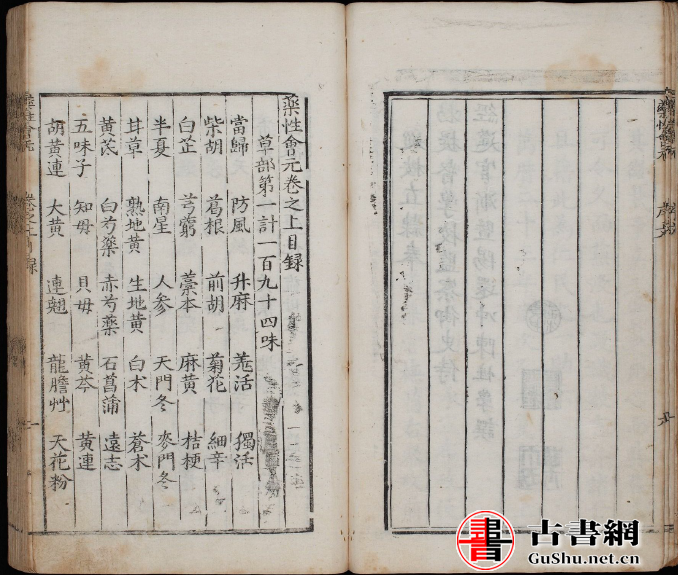 藥性會元卷之上目録
草部第一計一百九十四味
當歸 防風 升麻 羌活 獨活
柴胡 葛根 前胡 菊花 細辛
白芷 芎藭 藁本 麻黄 桔梗
半夏 南星 人参 天門冬 麥門冬
甘草 熟地黄 生地黄 白术 蒼术
黄芪 白芍藥 赤芍藥 石菖蒲 遠志
五味子 知母 貝母 黄芩 黄連
胡黄連 大黄 連翹 龍膽艸 天花粉
書 古書網
GuShu.net.cn